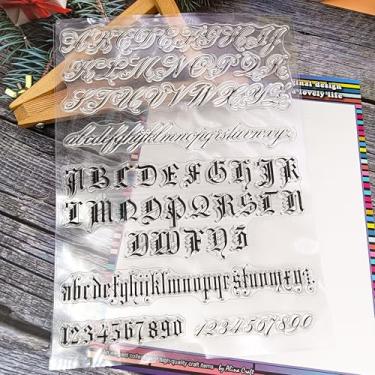 ABCDEFGHIJ
KLMNOPQR
STUVWXYZ
abcdefghijklmnopqrstuvwxyz
ABCDEFGH
IJKLMNOPQRSTU
VWXYZ
abcdefghijklmnopqrstuvwxyz
1234567890 1234567890
inal design
lovely life
high-quality craft items by Alina Craft